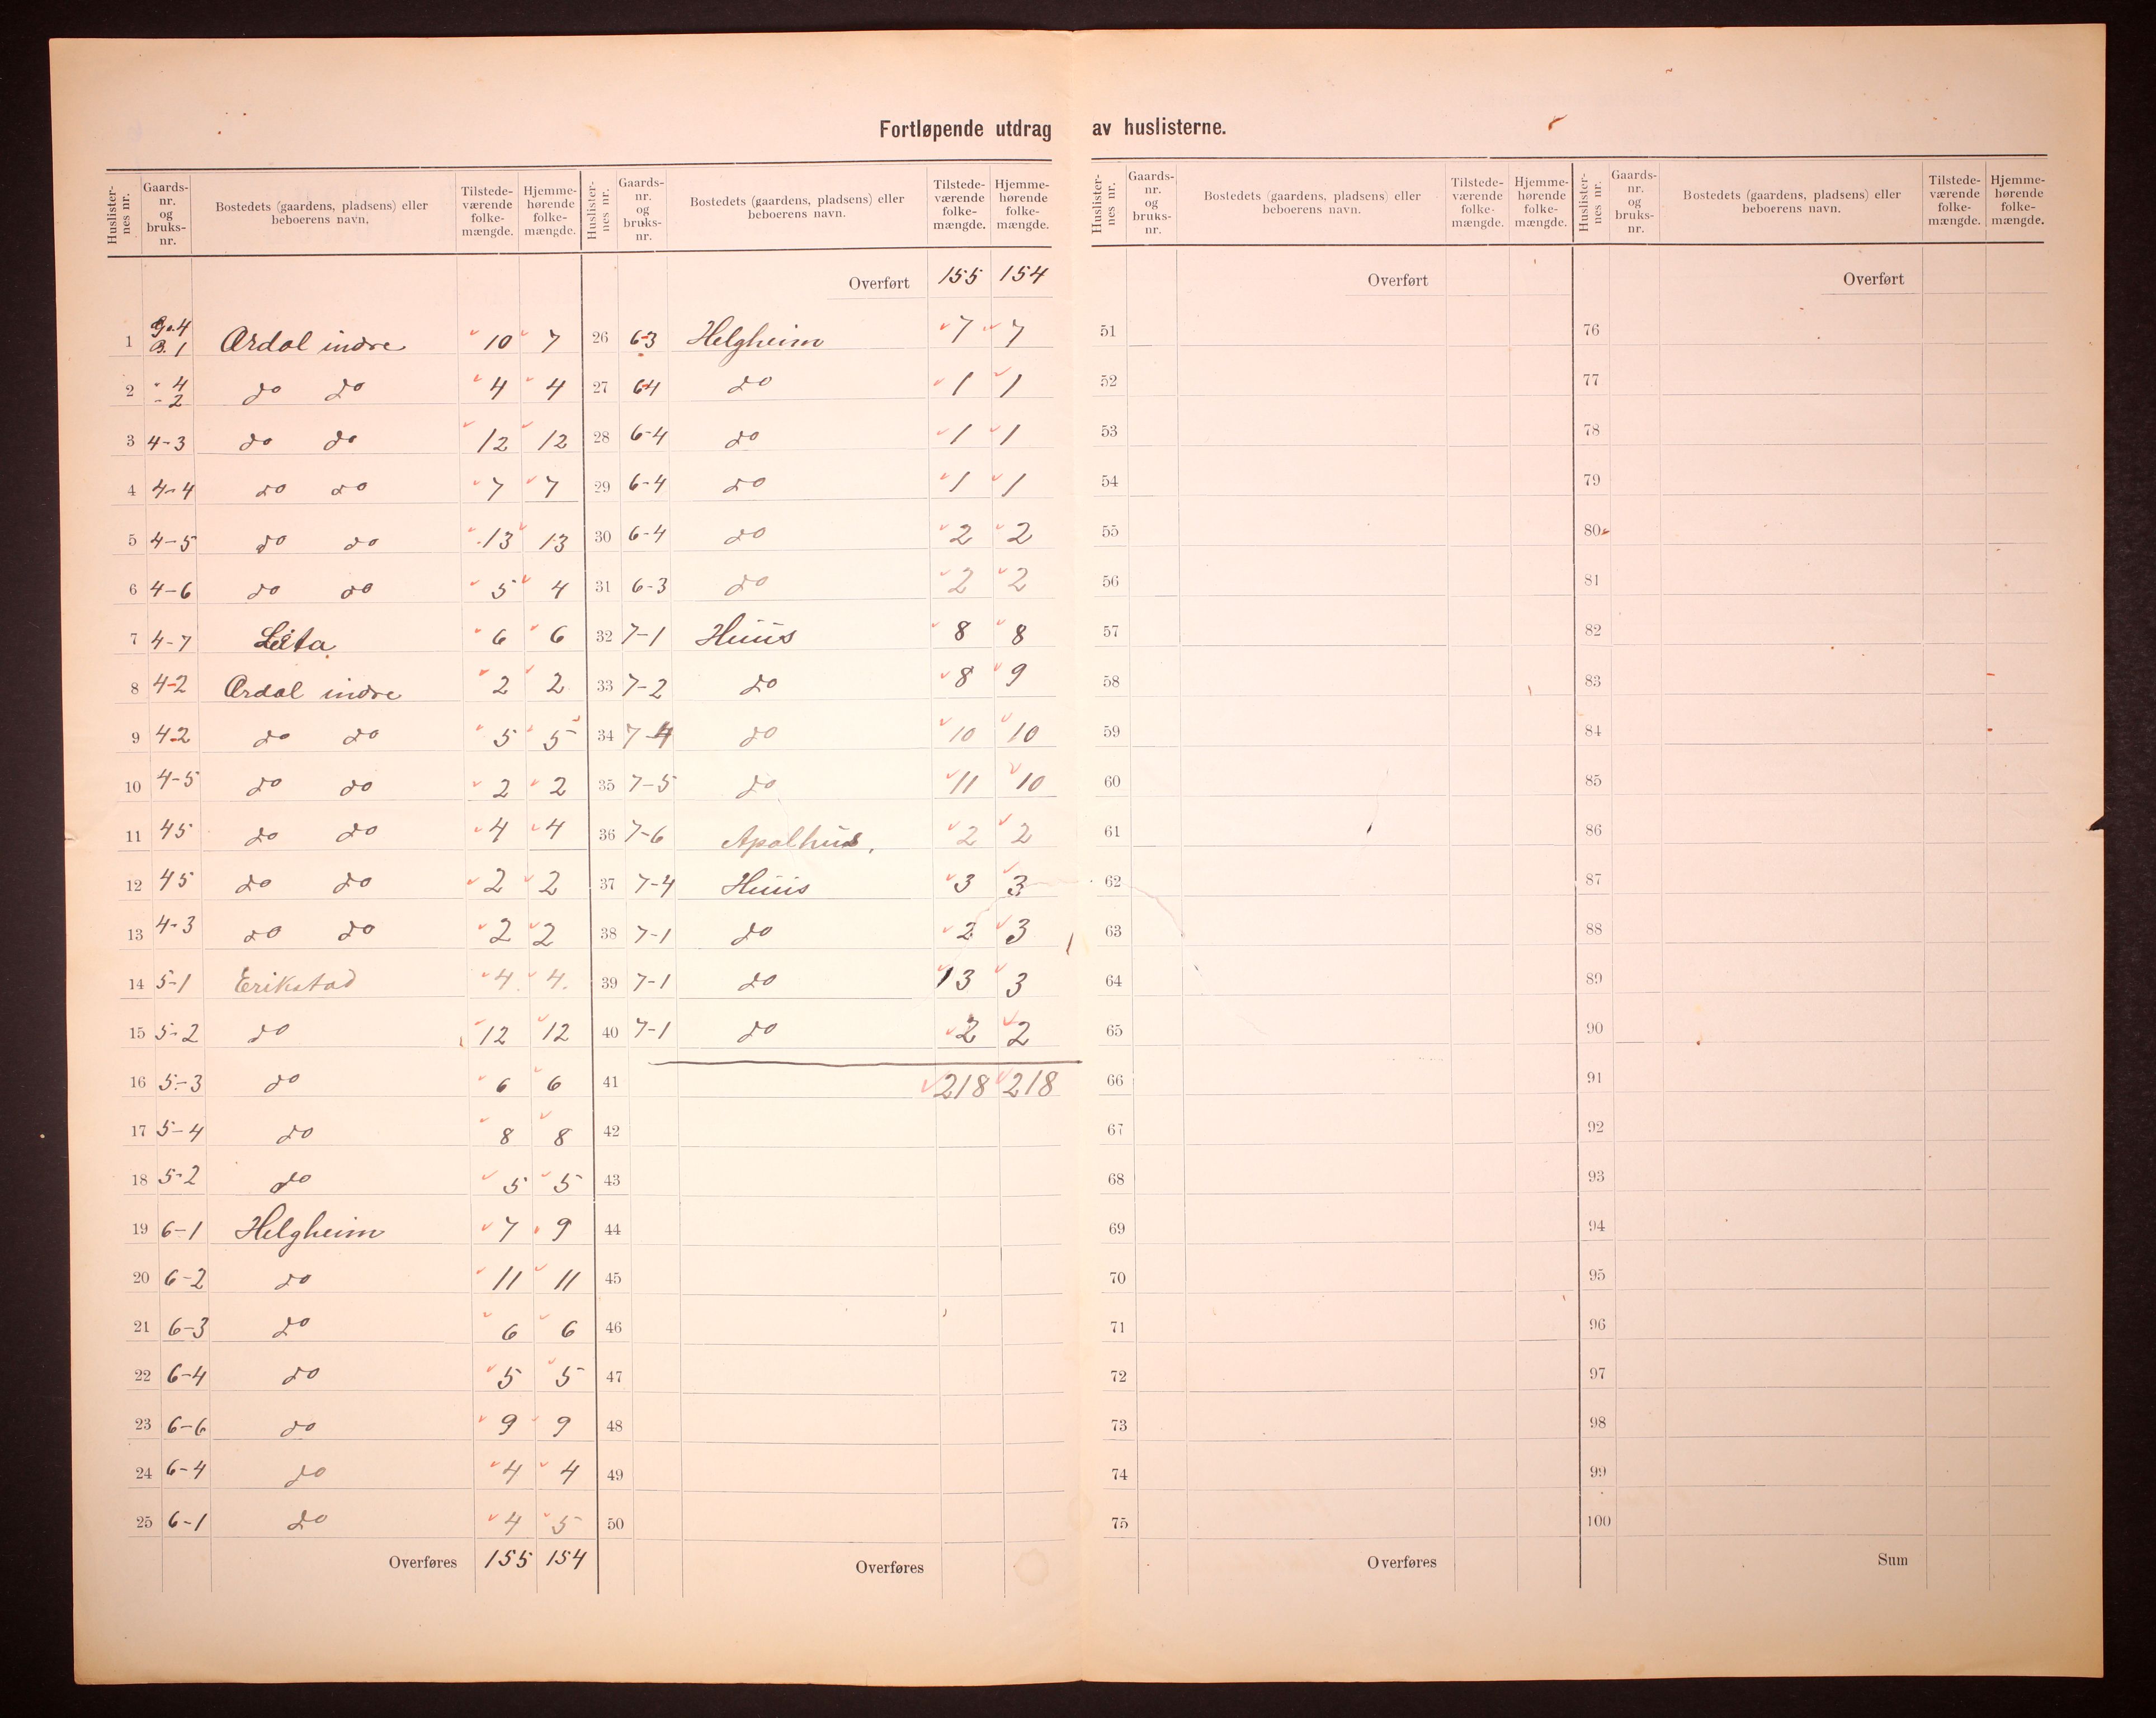 Fortløpende utdrag av huslisterne.
Huslisternes nr. Gaards-nr. og bruks-nr. Bostedets (gaardens, pladsens) eller beboerens navn. Tilstedeværende folkemængde. Hjemmehørende folkemængde.
1 G. 4 B. 1 Ørdal indre 10 7
2 " 4 - 2 do do 4 4
3 4-3 do do 12 12
4 4-4 do do 7 7
5 4-5 do do 13 13
6 4-6 do do 5 4
7 4-7 6 6
8 4-2 Ørdal indre 2 2
9 4-2 do do 5 5
10 4-5 do do 2 2
11 45 do do 4 4
12 45 do do 2 2
13 4-3 do do 2 2
14 5-1 Erikstad 4 4
15 5-2 do 12 12
16 5-3 do 6 6
17 5-4 do 8 8
18 5-2 do 5 5
19 6-1 Helgheim 7 9
20 6-2 do 11 11
21 6-3 do 6 6
22 6-4 do 5 5
23 6-6 do 9 9
24 6-4 do 4 4
25 6-1 do 4 5
Overføres 155 154
Huslisternes nr. Gaards-nr. og bruks-nr. Bostedets (gaardens, pladsens) eller beboerens navn. Tilstedeværende folkemængde. Hjemmehørende folkemængde.
Overført 155 154
26 6-3 Helgheim 7 7
27 6-4 do 1 1
28 6-4 do 1 1
29 6-4 do 1 1
30 6-4 do 2 2
31 6-3 do 2 2
32 7-1 Huus 8 8
33 7-2 do 8 9
34 7-4 do 10 10
35 7-5 do 11 10
36 7-6 Apalhus. 2 2
37 7-4 Huus 3 3
38 7-1 do 2 3
39 7-1 do 3 3
40 7-1 do 2 2
41 218 218
42
43
44
45
46
47
48
49
50
Overføres
Huslisternes nr. Gaards-nr. og bruks-nr. Bostedets (gaardens, pladsens) eller beboerens navn. Tilstedeværende folkemængde. Hjemmehørende folkemængde.
Overført
51
52
53
54
55
56
57
58
59
60
61
62
63
64
65
66
67
68
69
70
71
72
73
74
75
Overføres
Huslisternes nr. Gaards-nr. og bruks-nr. Bostedets (gaardens, pladsens) eller beboerens navn. Tilstedeværende folkemængde. Hjemmehørende folkemængde.
Overført
76
77
78
79
80
81
82
83
84
85
86
87
88
89
90
91
92
93
94
95
96
97
98
99
100
Sum